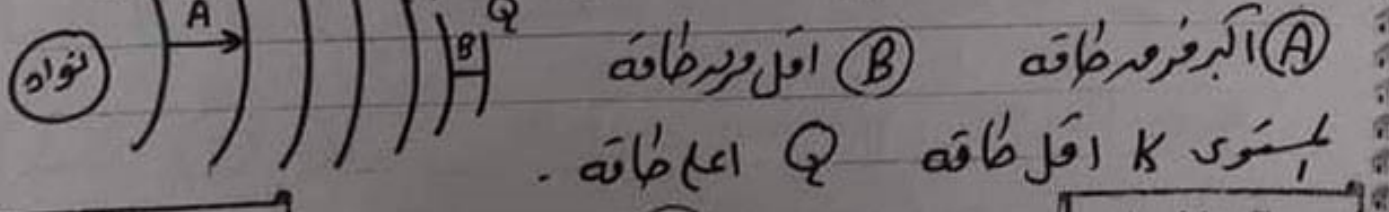 نواه A B Q
Ⓐ اكبر فرق طاقه Ⓑ اقل فرق طاقه
المستوى K اقل طاقه Q اعلى طاقه .